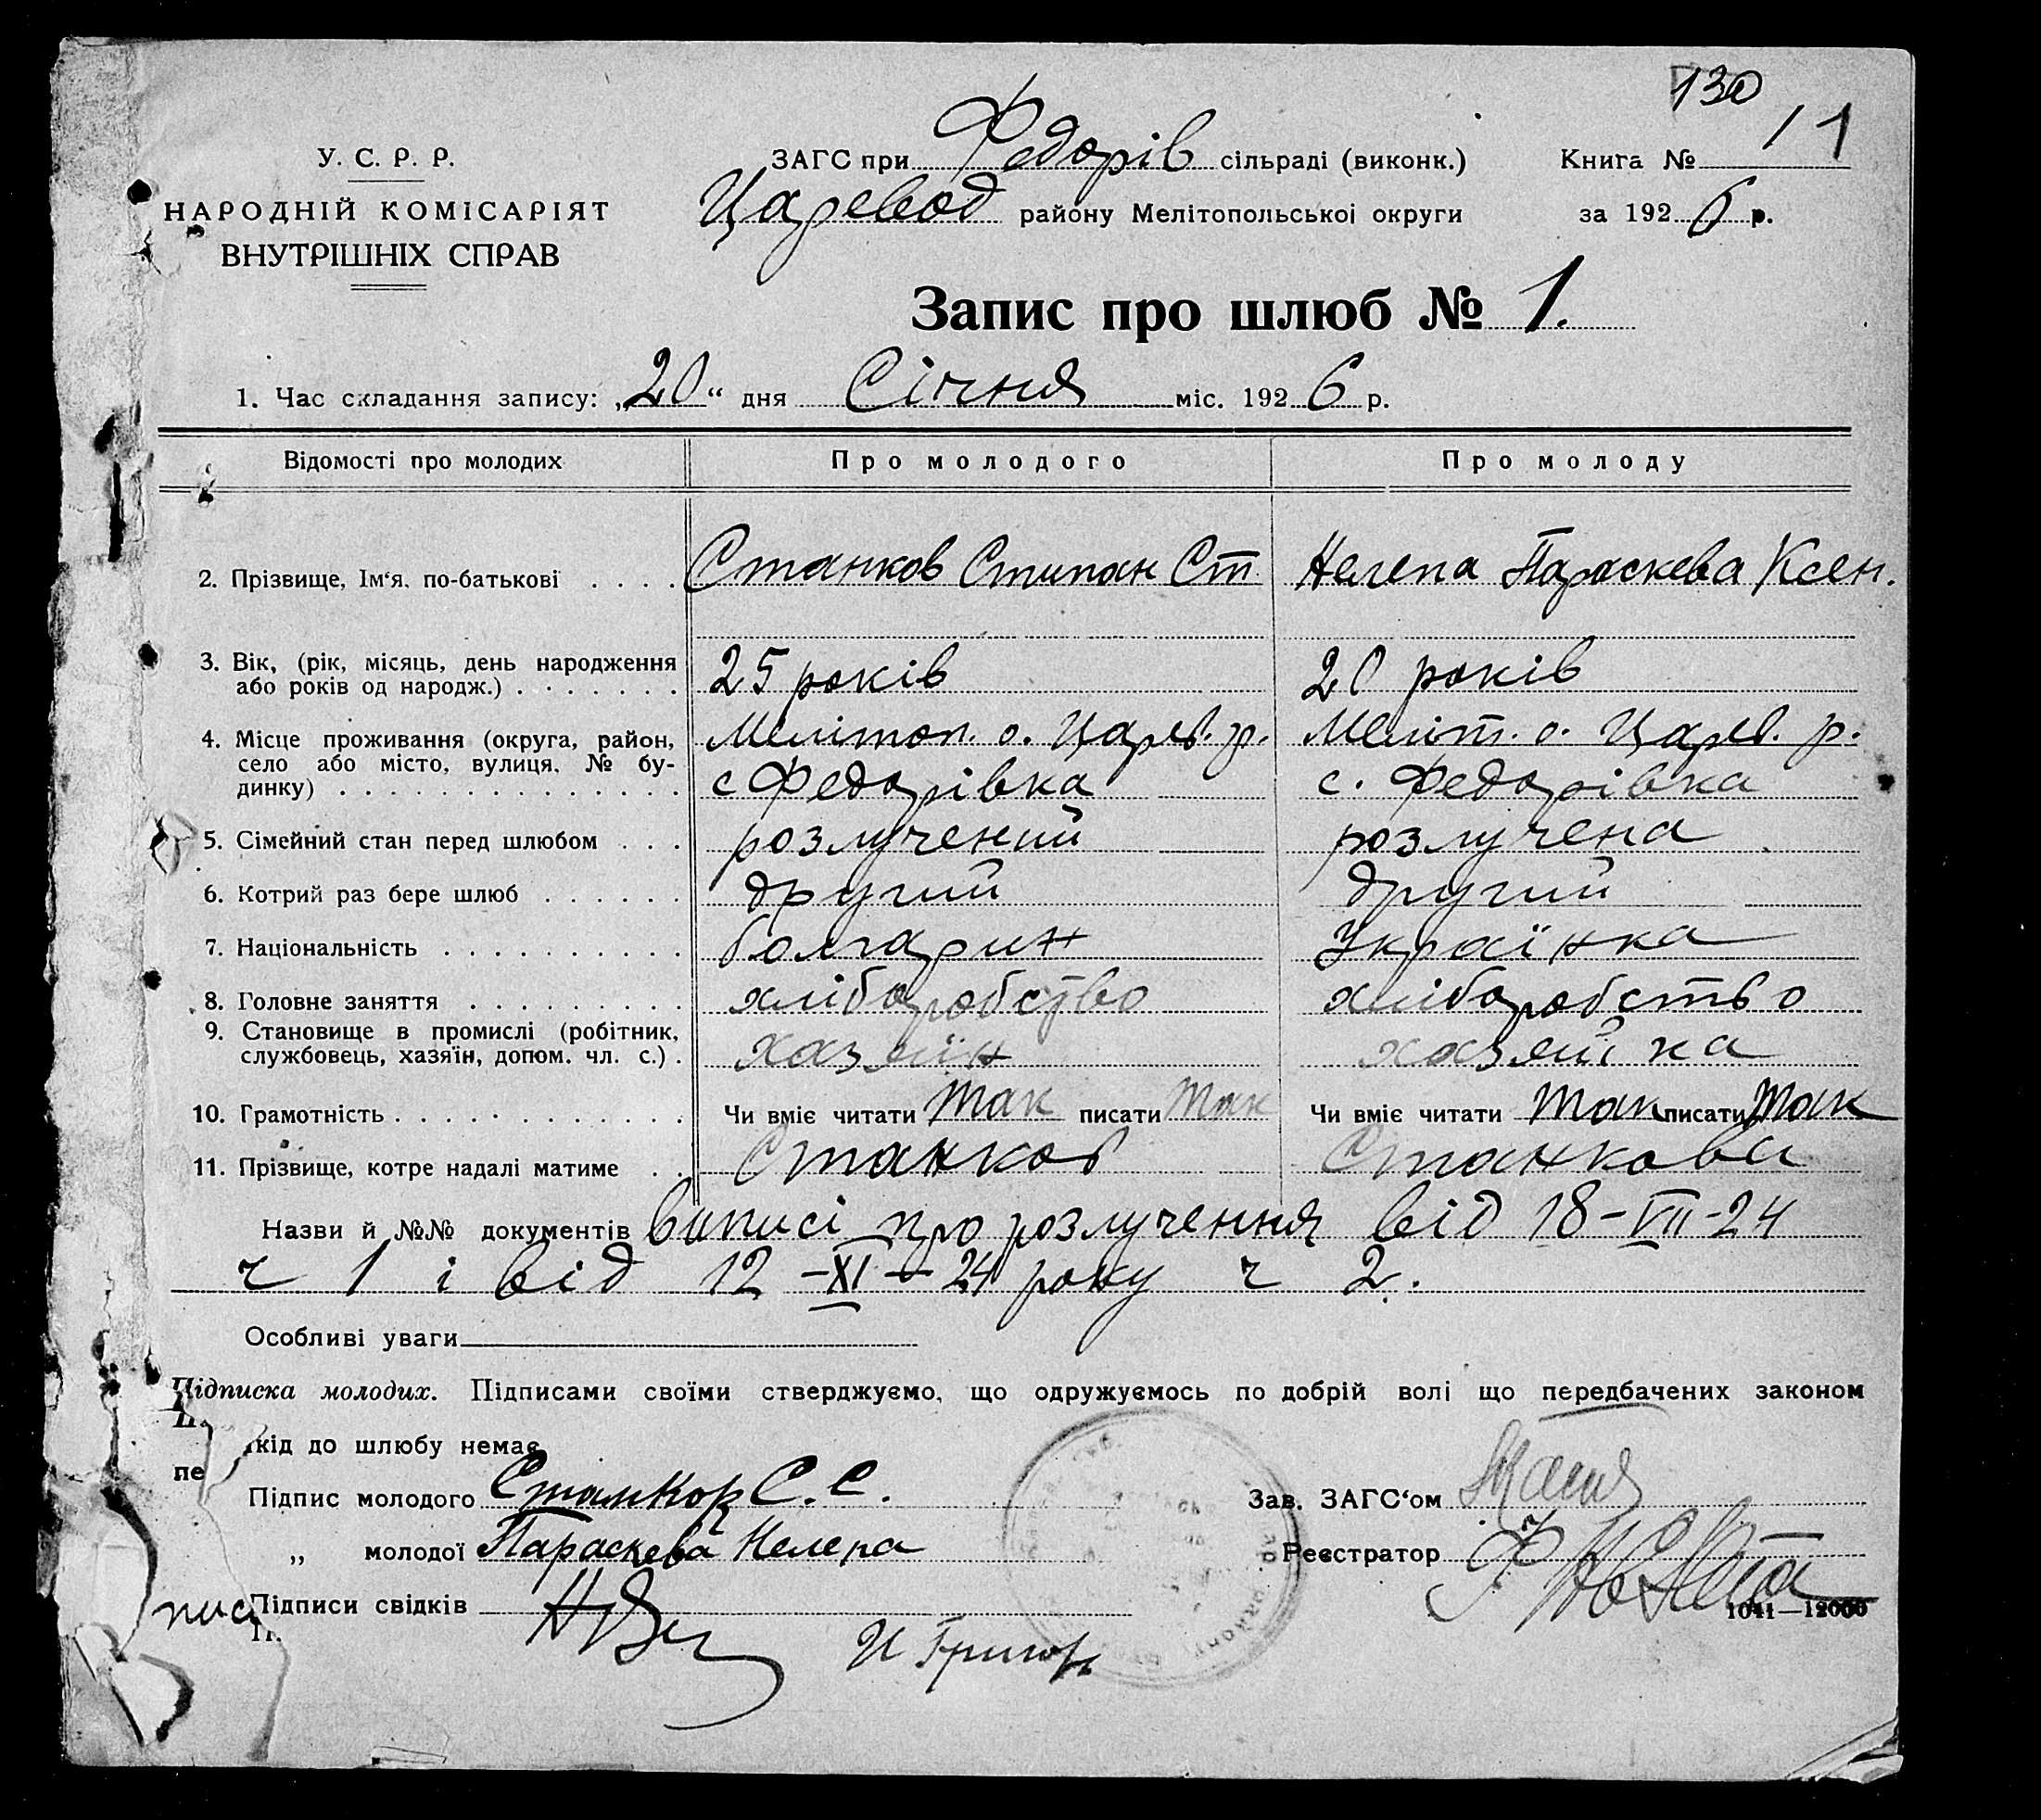 130
/ 1
У. С. Р. Р.
НАРОДНІЙ КОМІСАРІЯТ
ВНУТРІШНІХ СПРАВ
ЗАГС при Федорів сільраді (виконк.) Книга №
Царевод району Мелітопольської округи за 1926 р.
Запис про шлюб № 1.
1. Час складання запису: „20“ дня Січня міс. 1926 р.
Відомості про молодих Про молодого Про молоду
2. Прізвище, Ім‘я, по-батькові Станков Стипан Ст Нелепа Параскева Ксен.
3. Вік, (рік, місяць, день народження
або років од народж.) 25 років 20 років
4. Місце проживання (округа, район, Мелітоп. о. Царев. р. Меліт. о. Царев. р.
село або місто, вулиця, № бу-
динку) с Федорівка с. Федорівка
5. Сімейний стан перед шлюбом розлучений розлучена
6. Котрий раз бере шлюб другий другий
7. Національність болгарин Українка
8. Головне заняття хліборобство хліборобство
9. Становище в промислі (робітник,
службовець, хазяїн, допом. чл. с.) хазяїн хазяїка
10. Грамотність Чи вміє читати так писати так Чи вміє читати так писати так
11. Прізвище, котре надалі матиме Станков Станкова
Назви й №№ документів виписі про розлучення від 18-VII-24
ч 1 і від 12-XI-24 року ч 2.
Особливі уваги
Підписка молодих. Підписами своїми стверджуємо, що одружуємось по добрій волі що передбачених законом
кід до шлюбу немає
пе
Підпис молодого Станков С. С. Зав. ЗАГС‘ом
„ молодої Параскева Нелепа Реєстратор
Підписи свідків
пис
1041—12000
И Григор